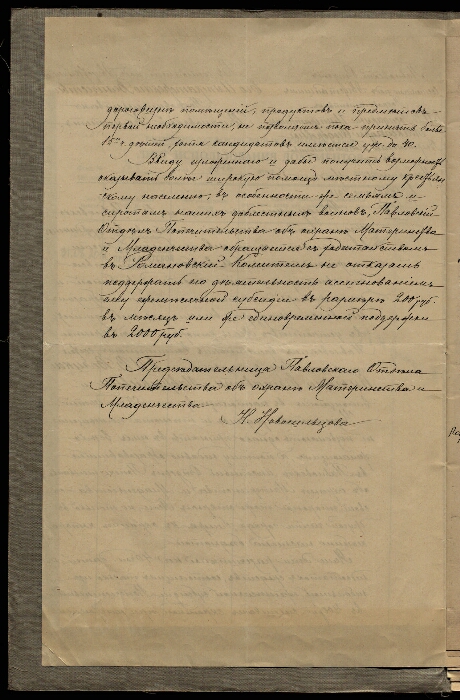 дороговизнѣ помѣщеній, продуктовъ и предметовъ
первой необходимости, не позволяетъ пока принять болѣе
15ти дѣтей, хотя кандидатовъ имѣется уже до 40.
Ввиду изложеннаго и дабы получить возможность
оказывать болѣе широкую помощь мѣстному крестьян-
скому населенію, въ особенности же семьямъ и
сиротамъ нашихъ доблестныхъ воиновъ, Павловскій
Отдѣлъ Попечительства объ охранѣ Материнства
и Младенчества обращается съ ходатайствомъ
въ Романовскій Комитетъ не отказать
поддержать его дѣятельность ассигнованіемъ
ему ежемѣсячной субсидіи въ размѣрѣ 200 руб.
въ мѣсяцъ или же единовременной поддержки
въ 2000 руб.
Предсѣдательница Павловскаго Отдѣла
Попечительства объ охранѣ Материнства и
Младенчества
Н. Новосильцова